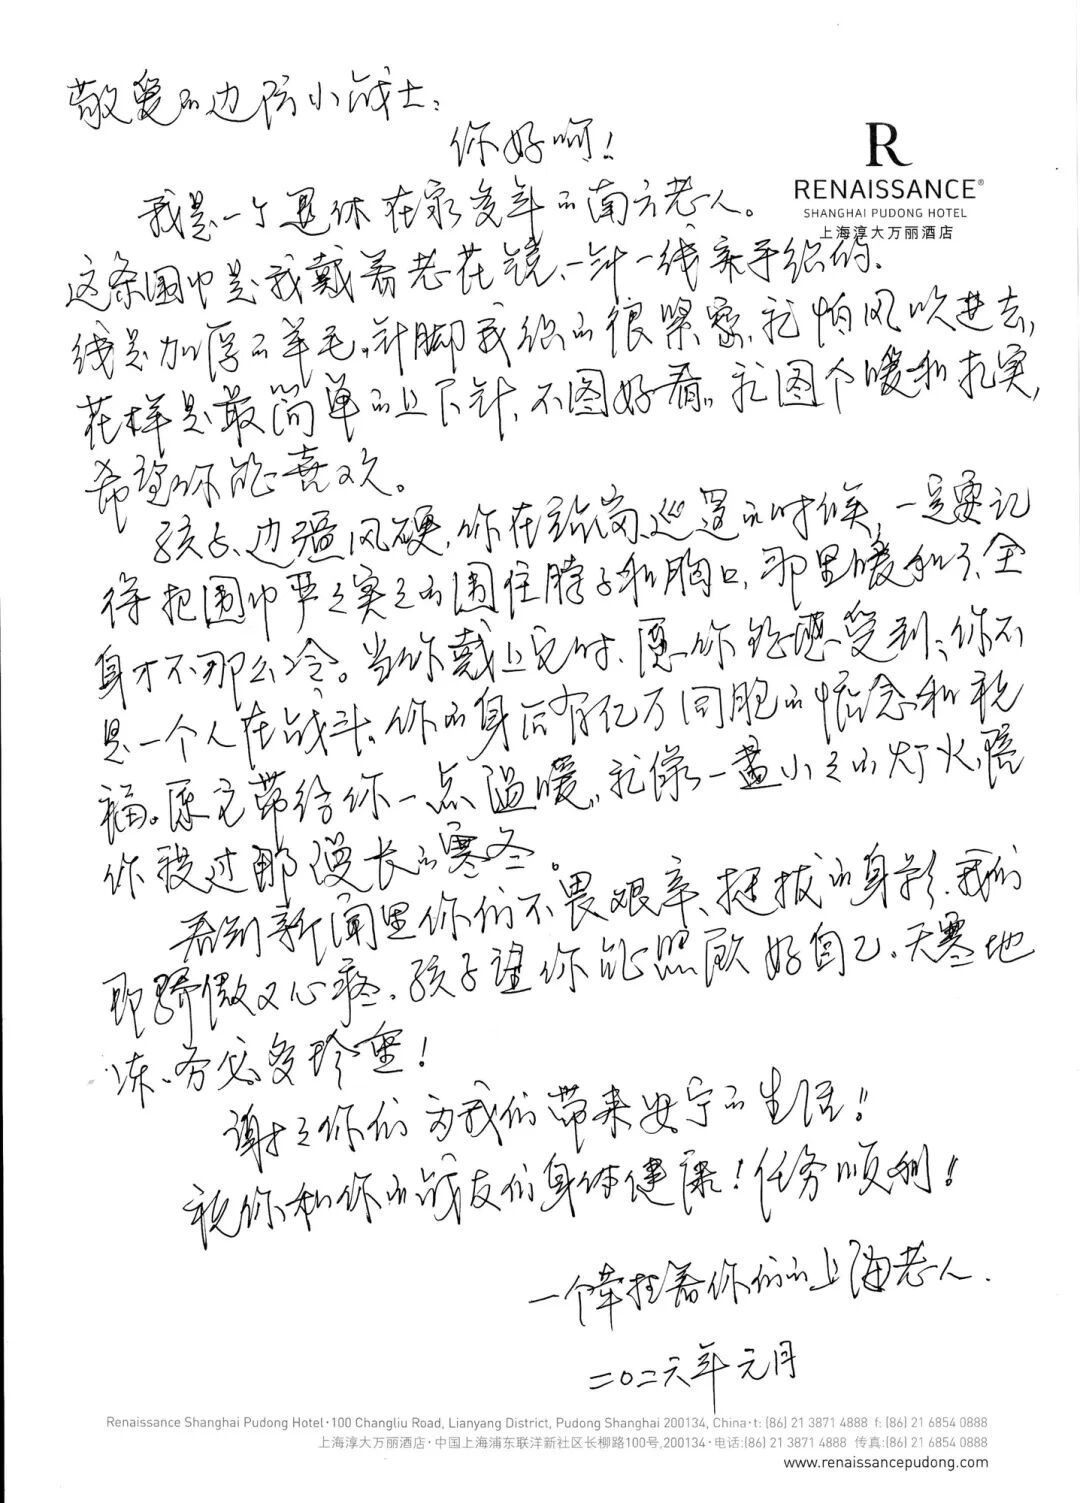 敬爱的边防小战士：
你好啊！
R
RENAISSANCE®
SHANGHAI PUDONG HOTEL
上海淳大万丽酒店
我是一个退休在家多年的南方老人。
这条围巾是我戴着老花镜、一针一线亲手织的、
线是加厚的羊毛。针脚我织的很紧密、我怕风吹进去，
花样是最简单的上下针、不图好看。我图个暖和扎实，
希望你能喜欢。
孩子、边疆风硬，你在站岗、巡逻的时候，一定要记
得把围巾严严实实的围住脖子和胸口，那里暖和了、全
身才不那么冷。当你戴上它时、愿你能感受到：你不
是一个人在战斗、你的身后有亿万同胞的惦念和祝
福。愿它带给你一点温暖，就像一盏小小的灯火、陪
你我过那漫长的寒冬。
看到新闻里你们不畏艰辛、挺拔的身影、我们
即骄傲又心疼、孩子望你能照顾好自己、天寒地
冻、务必多珍重！
谢谢你们为我们带来安宁的生活！
祝你和你的战友们身体健康！任务顺利！
一个牵挂着你们的上海老人.
二〇二六年元月
Renaissance Shanghai Pudong Hotel·100 Changliu Road, Lianyang District, Pudong Shanghai 200134, China·t: (86) 21 3871 4888 f: (86) 21 6854 0888
上海淳大万丽酒店·中国上海浦东联洋新社区长柳路100号,200134·电话:(86) 21 3871 4888 传真:(86) 21 6854 0888
www.renaissancepudong.com